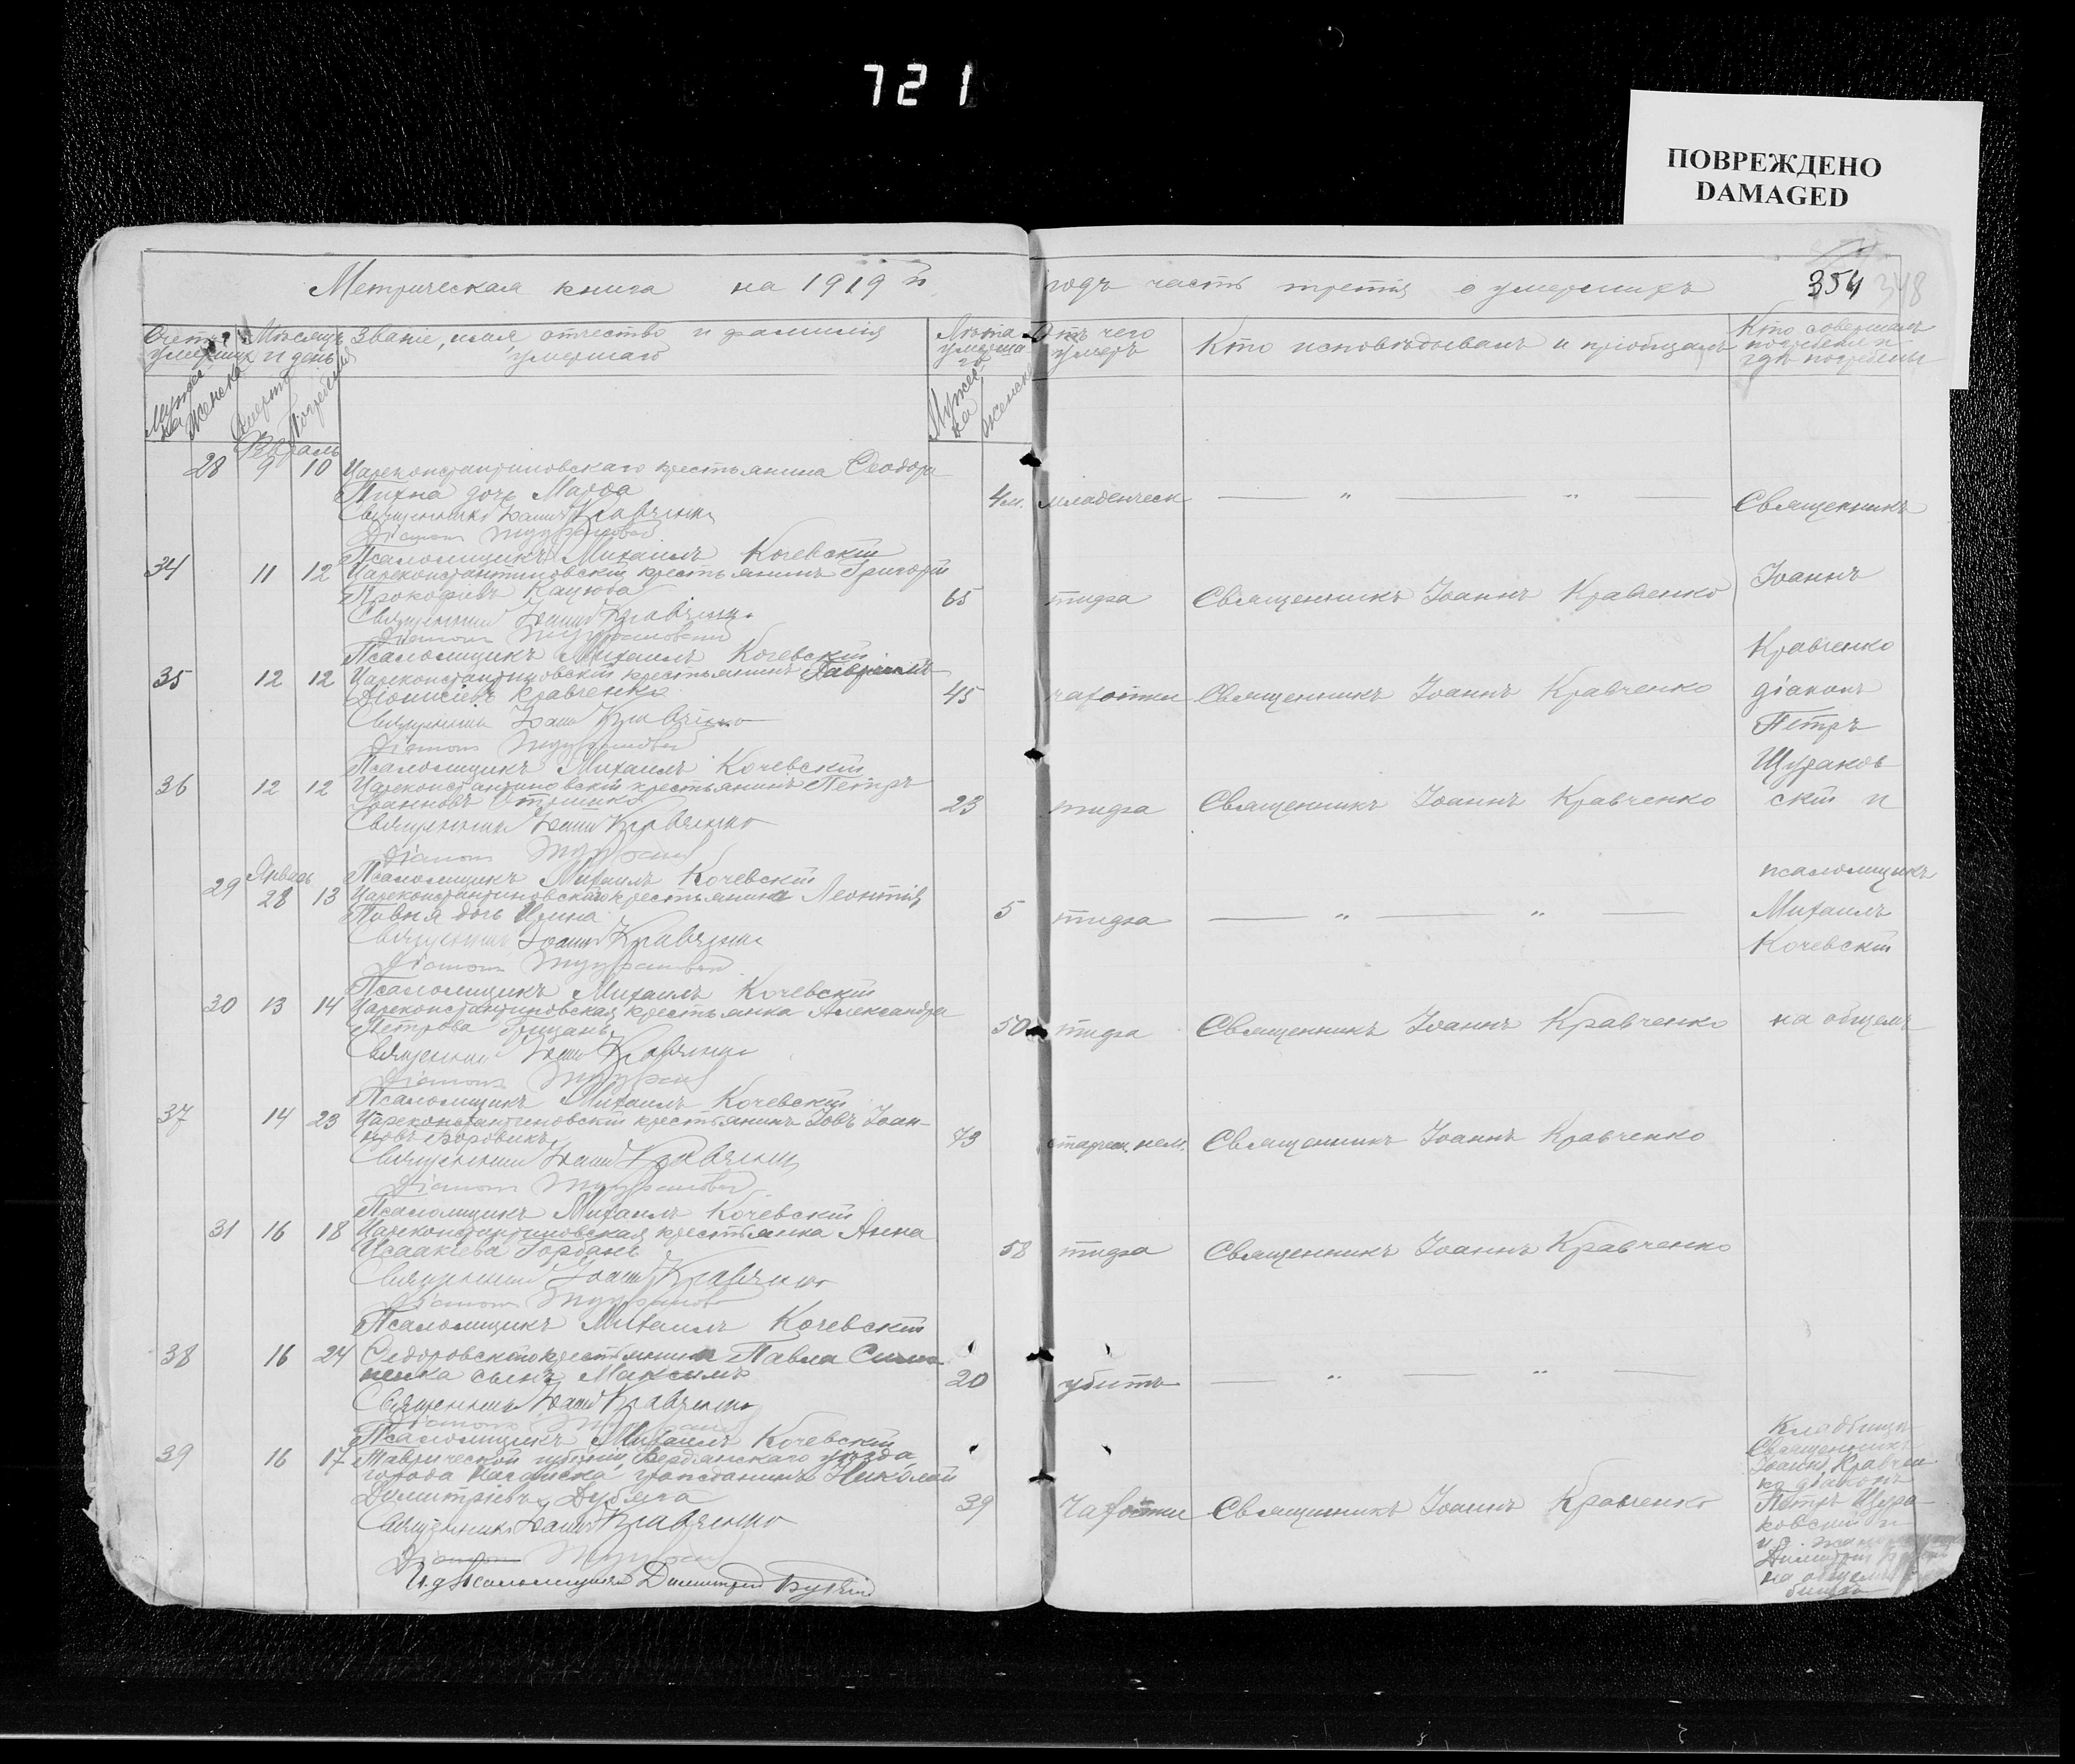 721
ПОВРЕЖДЕНО
DAMAGED
Метрическая книга на 1919 й
годъ часть третія о умершихъ
354 348
Счетъ умершихъ
Мѣсяцъ и день
Званіе, имя отчество и фамилія умершаго
Лѣта умершаго
Отъ чего умеръ
Кто исповѣдывалъ и пріобщалъ
Кто совершалъ погребеніе и гдѣ погребены
Мужеска
Женска
Смерти
Погребенія
Мужеска
Женска
Февраль
28 9 10 Цареконстантиновскаго крестьянина Ѳеодора
дочь Марѳа 4 м. младенческ — " — " —
Священникъ Іоаннъ Кравченко
Діаконъ
Псаломщикъ Михаилъ Кочевскій
34 11 12 Цареконстантиновскій крестьянинъ Григорій
Прокофіевъ 65 тифа Священникъ Іоаннъ Кравченко
Священникъ Іоаннъ Кравченко
Діаконъ
Псаломщикъ Михаилъ Кочевскій
35 12 12 Цареконстантиновскій крестьянинъ Гавріилъ
Діонисіевъ Кравченко 45 чахотки Священникъ Іоаннъ Кравченко
Священникъ Іоаннъ Кравченко
Діаконъ
Псаломщикъ Михаилъ Кочевскій
36 12 12 Цареконстантиновскій крестьянинъ Петръ
Іоанновъ 23 тифа Священникъ Іоаннъ Кравченко
Священникъ Іоаннъ Кравченко
Діаконъ
Псаломщикъ Михаилъ Кочевскій
Январь
29 28 13 Цареконстантиновскаго крестьянина Леонтія
дочь Ирина 5 тифа — " — " —
Священникъ Іоаннъ Кравченко
Діаконъ
Псаломщикъ Михаилъ Кочевскій
30 13 14 Цареконстантиновская крестьянка Александра
Петрова 50 тифа Священникъ Іоаннъ Кравченко
Священникъ Іоаннъ Кравченко
Діаконъ
Псаломщикъ Михаилъ Кочевскій
37 14 23 Цареконстантиновскій крестьянинъ Іовъ Іоан-
новъ Боровикъ 73 Священникъ Іоаннъ Кравченко
Священникъ Іоаннъ Кравченко
Діаконъ
Псаломщикъ Михаилъ Кочевскій
31 16 18 Цареконстантиновская крестьянка Анна
Исаакіева Горбань 58 тифа Священникъ Іоаннъ Кравченко
Священникъ Іоаннъ Кравченко
Діаконъ
Псаломщикъ Михаилъ Кочевскій
38 16 24 Ѳедоровскаго крестьянина Павла
сынъ Максимъ 20 убитъ — " — " —
Священникъ Іоаннъ Кравченко
Діаконъ
Псаломщикъ Михаилъ Кочевскій
39 16 17 Таврической губерніи Бердянскаго уѣзда
города Ногайска гражданинъ Николай
Димитріевъ Дубяга 39 Чахотки Священникъ Іоаннъ Кравченко
Священникъ Іоаннъ Кравченко
Діаконъ
И.д. Псаломщика Димитрій
Священникъ
Іоаннъ
Кравченко
діаконъ
Петръ
Щураков
скій и
псаломщикъ
Михаилъ
Кочевскій
на общемъ
кладбищѣ
Священникъ
Іоаннъ Кравчен
ко діаконъ
Петръ Щура
ковскій и
Димитрій
на общемъ